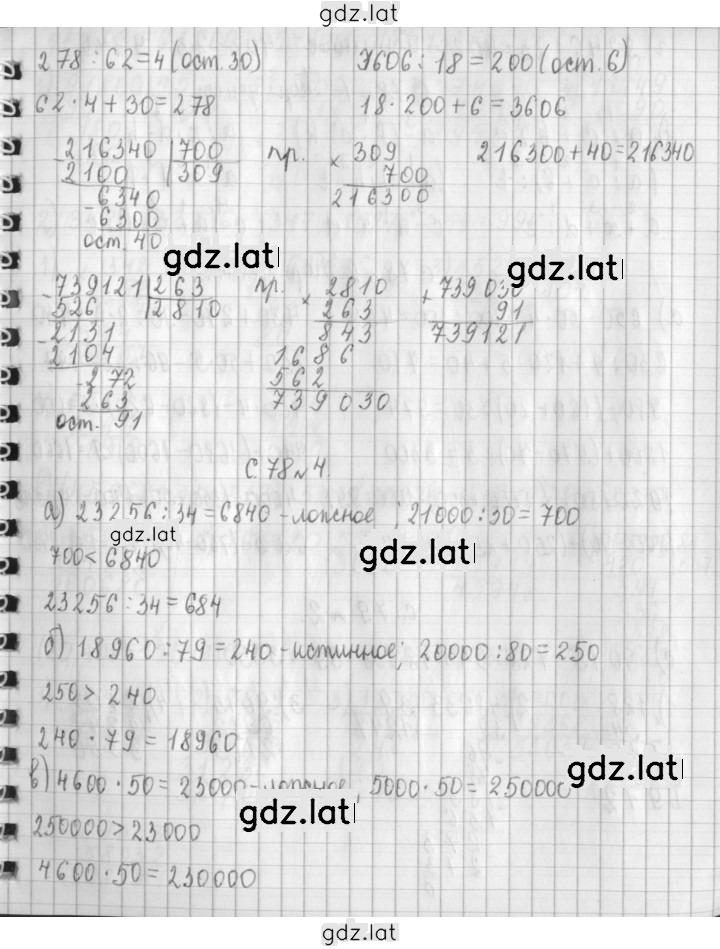 gdz.lat
278 : 62 = 4 (ост. 30) 3606 : 18 = 200 (ост. 6)
62 · 4 + 30 = 278 18 · 200 + 6 = 3606
216340 | 700 пр. × 309 216300 + 40 = 216340
2100 | 309 700
- 6340 216300
6300
ост. 40
gdz.lat
gdz.lat
- 739121 | 263 пр. × 2810 + 739030
526 | 2810 263 91
- 2131 843 739121
2104 1686
- 272 562
263 739030
ост. 91
С. 78 № 4.
а) 23256 : 34 = 6840 - ложное ; 21000 : 30 = 700
gdz.lat
gdz.lat
700 < 6840
23256 : 34 = 684
б) 18960 : 79 = 240 - истинное; 20000 : 80 = 250
250 > 240
240 · 79 = 18960
в) 4600 · 50 = 23000 - ложное, 5000 · 50 = 250000
gdz.lat
gdz.lat
250000 > 23000
4600 · 50 = 230000
gdz.lat